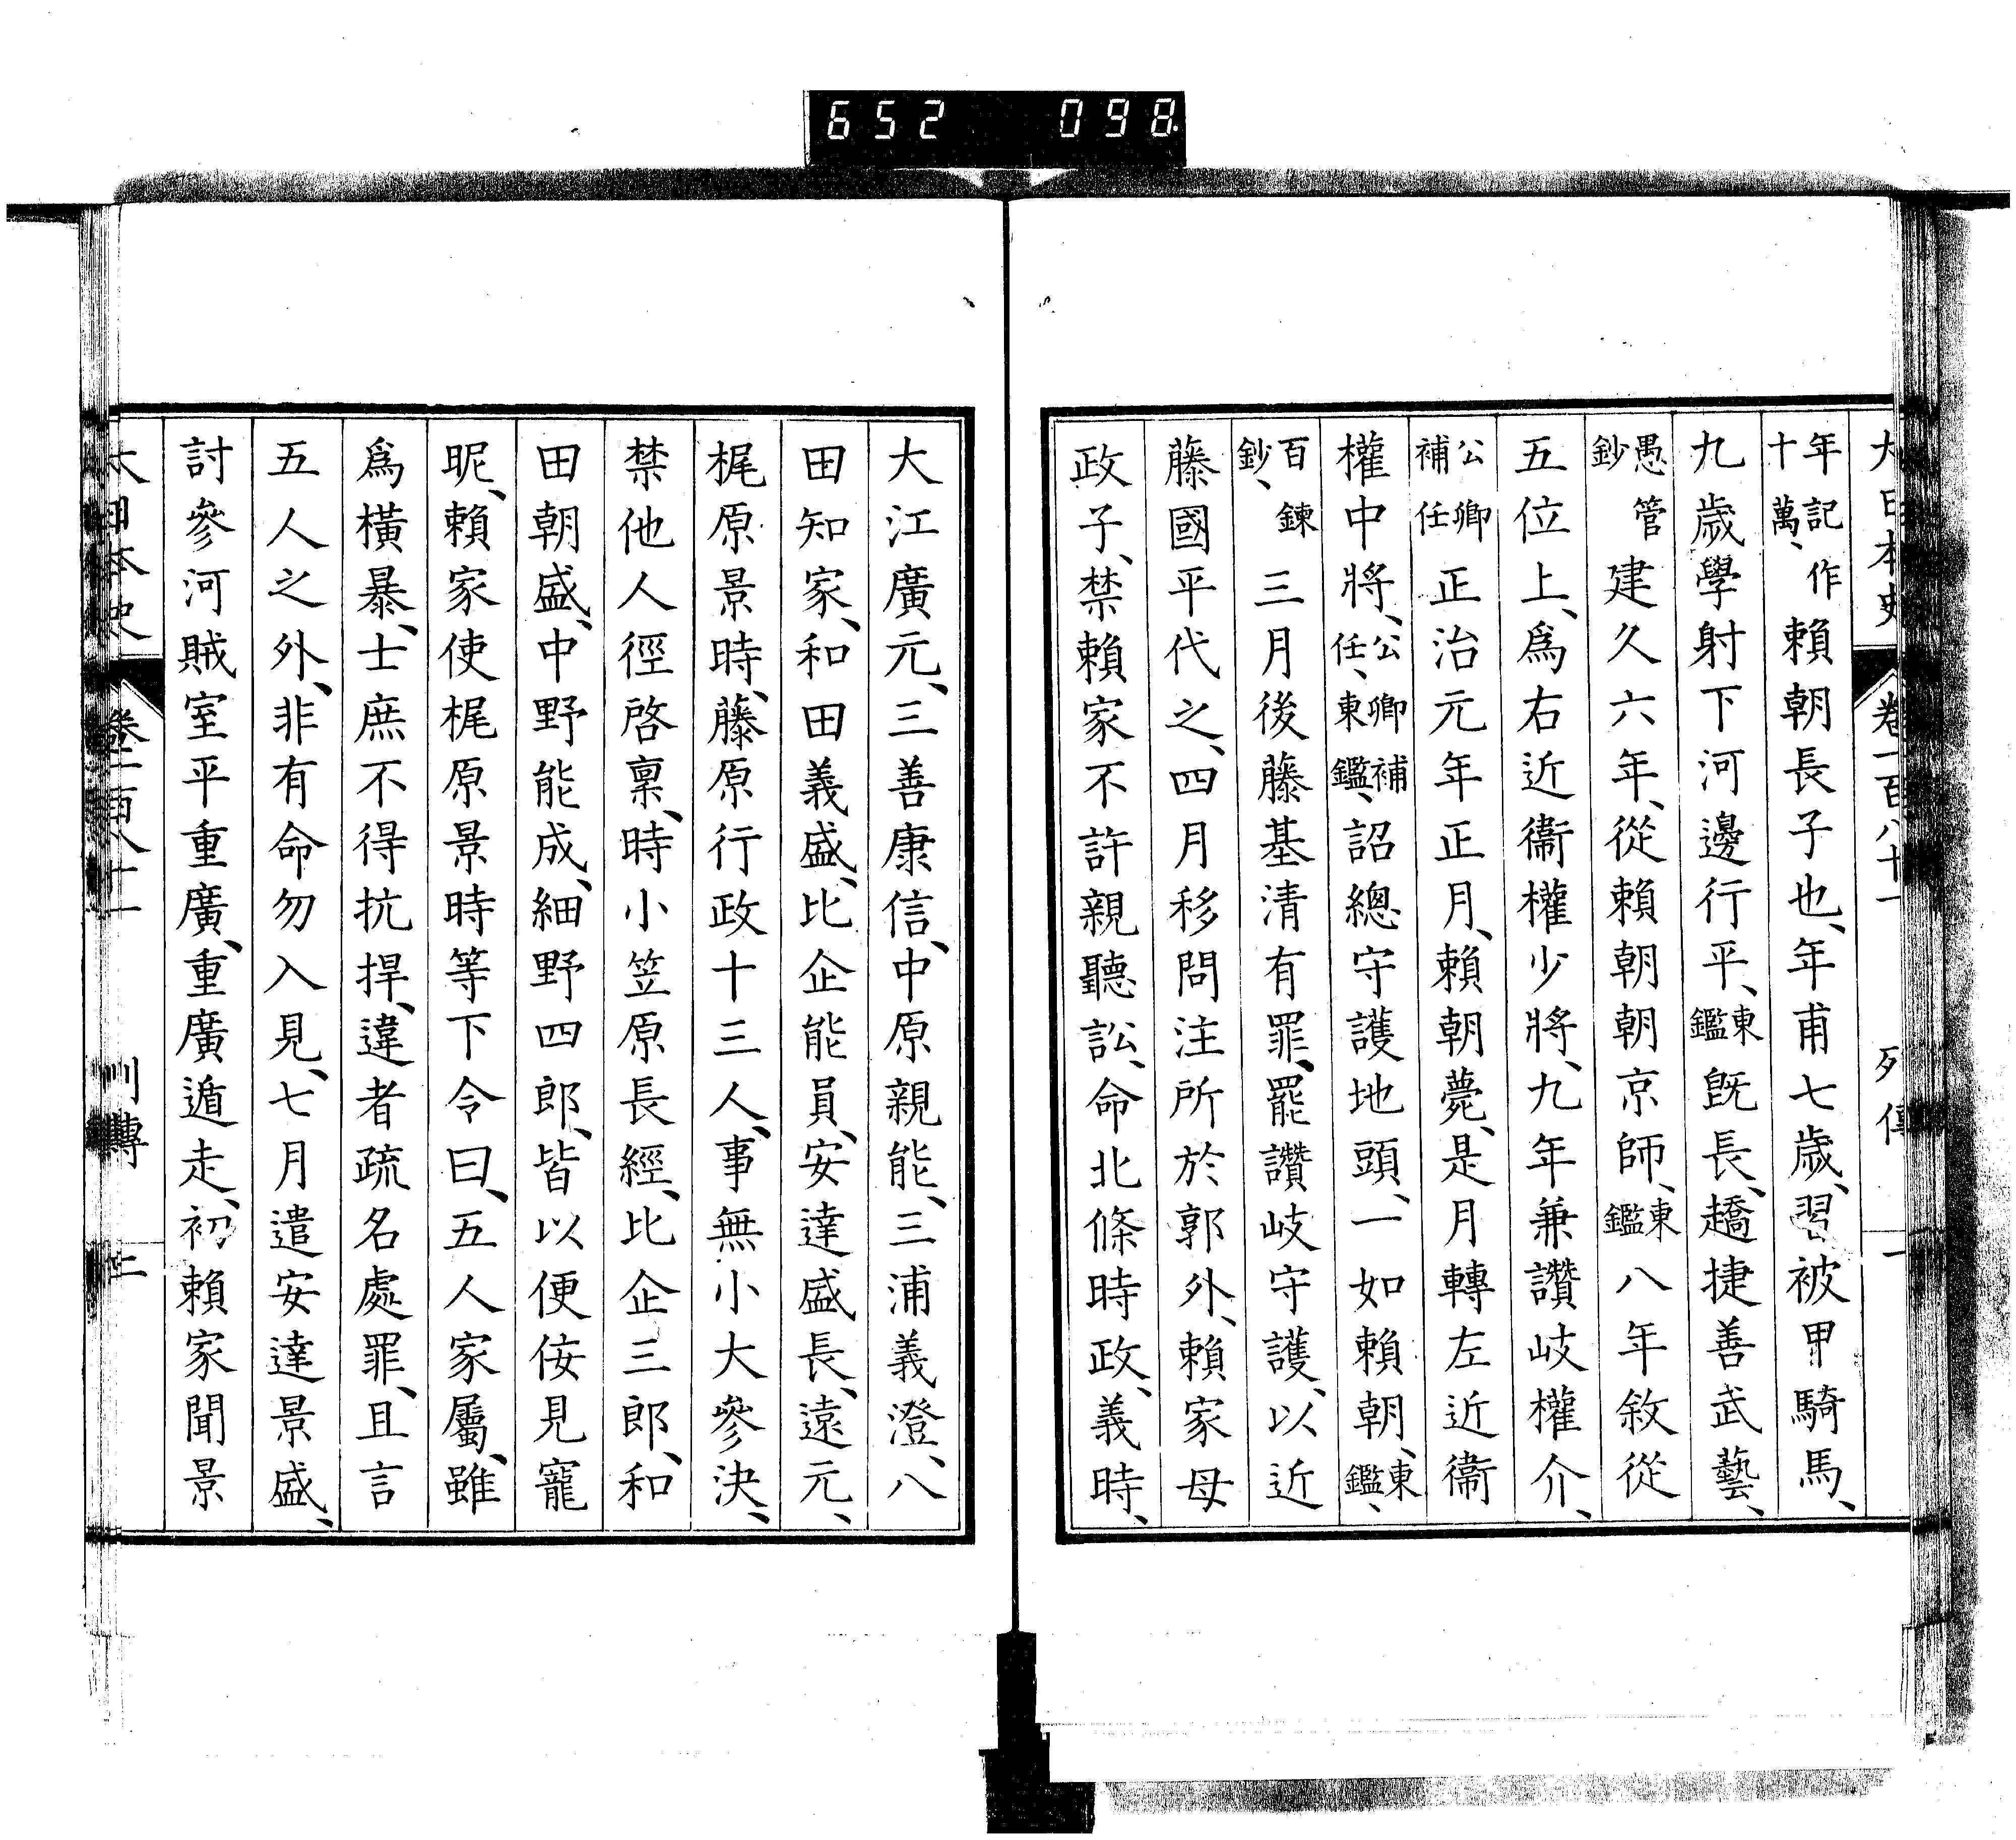 652 098
大日本史 卷一百八十一 列傳 一
年記作十萬、賴朝長子也、年甫七歲、習被甲騎馬、
九歲學射下河邊行平、東鑑既長、趫捷善武藝、
愚管鈔建久六年、從賴朝朝京師、東鑑八年敘從
五位上、爲右近衞權少將、九年兼讚岐權介、
公卿補任正治元年正月、賴朝薨、是月轉左近衞
權中將、公卿補任、東鑑、詔總守護地頭、一如賴朝、東鑑、
百鍊鈔、三月後藤基清有罪、罷讚岐守護、以近
藤國平代之、四月移問注所於郭外、賴家母
政子、禁賴家不許親聽訟、命北條時政、義時、
大江廣元、三善康信、中原親能、三浦義澄、八
田知家、和田義盛、比企能員、安達盛長、遠元、
梶原景時、藤原行政十三人、事無小大參決、
禁他人徑啓稟、時小笠原長經、比企三郎、和
田朝盛、中野能成、細野四郎、皆以便佞見寵
昵、賴家使梶原景時等下令曰、五人家屬、雖
爲橫暴、士庶不得抗捍、違者疏名處罪、且言
五人之外、非有命勿入見、七月遣安達景盛、
討參河賊室平重廣、重廣遁走、初賴家聞景
大日本史 卷一百八十一 列傳 二